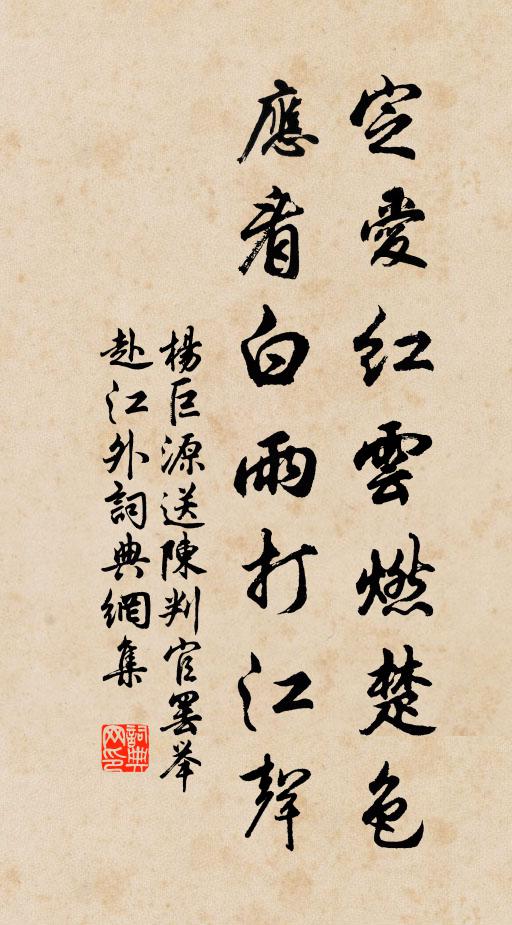 定愛紅雲燃楚色
應看白雨打江聲
楊巨源送陳判官罷举
赴江外詞典網集
詞典
网印